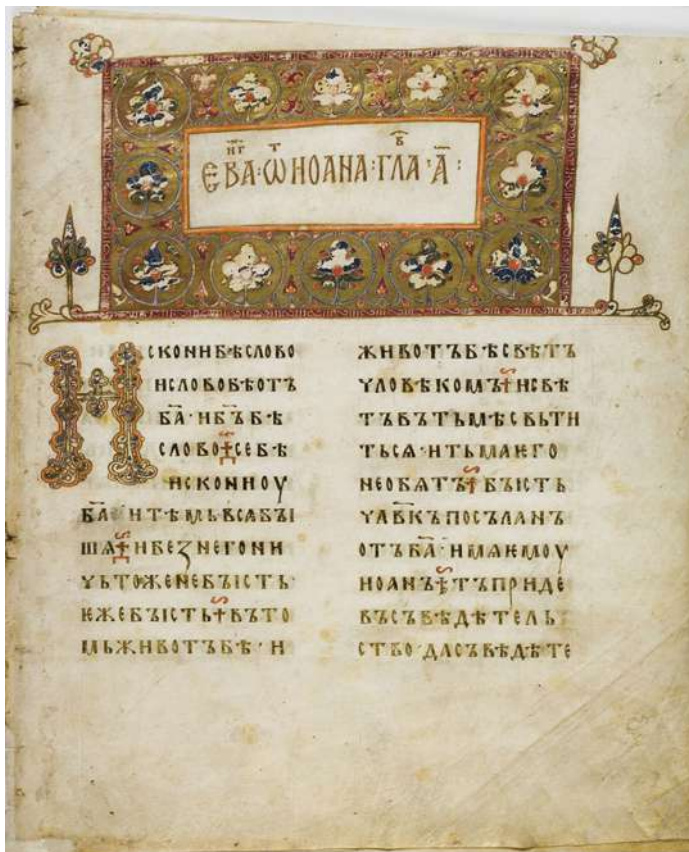 ЕВА҃НГ · ѠТ ИОАНА · ГЛАВ · А҃ :
ИСКОНИБѢСЛОВО
ИСЛОВОБѢОТЪ
БА҃ · ИБЪ҃БѢ
СЛОВО СЕБѢ
ИСКОНИОУ
БА҃ · ИТѢМЬВСѦБꙐ
ШѦ ИБЕꙀНЕГОНИ
ЧЬТОЖЕНЕБꙐСТЬ ·
ѤЖЕБꙐСТЬ ВЪТО
МЬЖИВОТЪБѢ · И
ЖИВОТЪБѢСВѢТЪ
ЧЛОВѢКОМЪ ИСВѢ
ТЪВЪТЬМѢСВЬТИ
ТЬСѦ · ИТЬМАѤГО
НЕОБѦТЪ БꙐСТЬ
ЧЛ҃ВКЪПОСЪЛАНЪ
ОТЪБА҃ · ИМѦѤМОУ
ИОАНЪ ТЪПРИДЕ
ВЪСЪВѢДѢТЕЛЬ
СТВО · ДАСЪВѢДѢТЕ